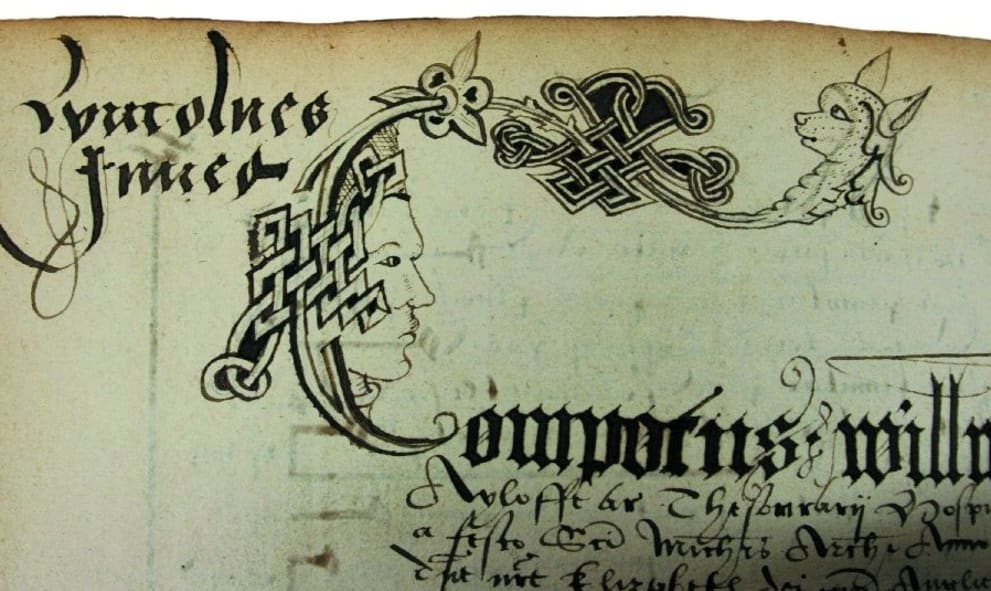 Lyncolnes
Innes
Compotus Willm
Ayloffe ar Thesaurarij Hospi
a festo Sci Michis Archi Anno
Elizabeth dei Anglie